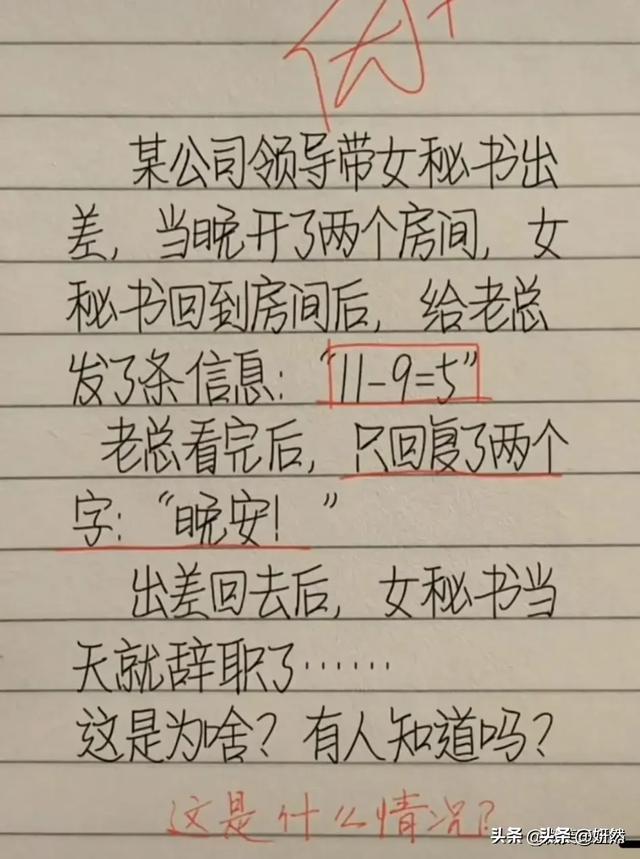 优+
某公司领导带女秘书出
差，当晚开了两个房间，女
秘书回到房间后，给老总
发了条信息：“11-9=5”
老总看完后，只回复了两个
字：“晚安！”
出差回去后，女秘书当
天就辞职了……
这是为啥？有人知道吗？
这是什么情况？
头条 @妍然